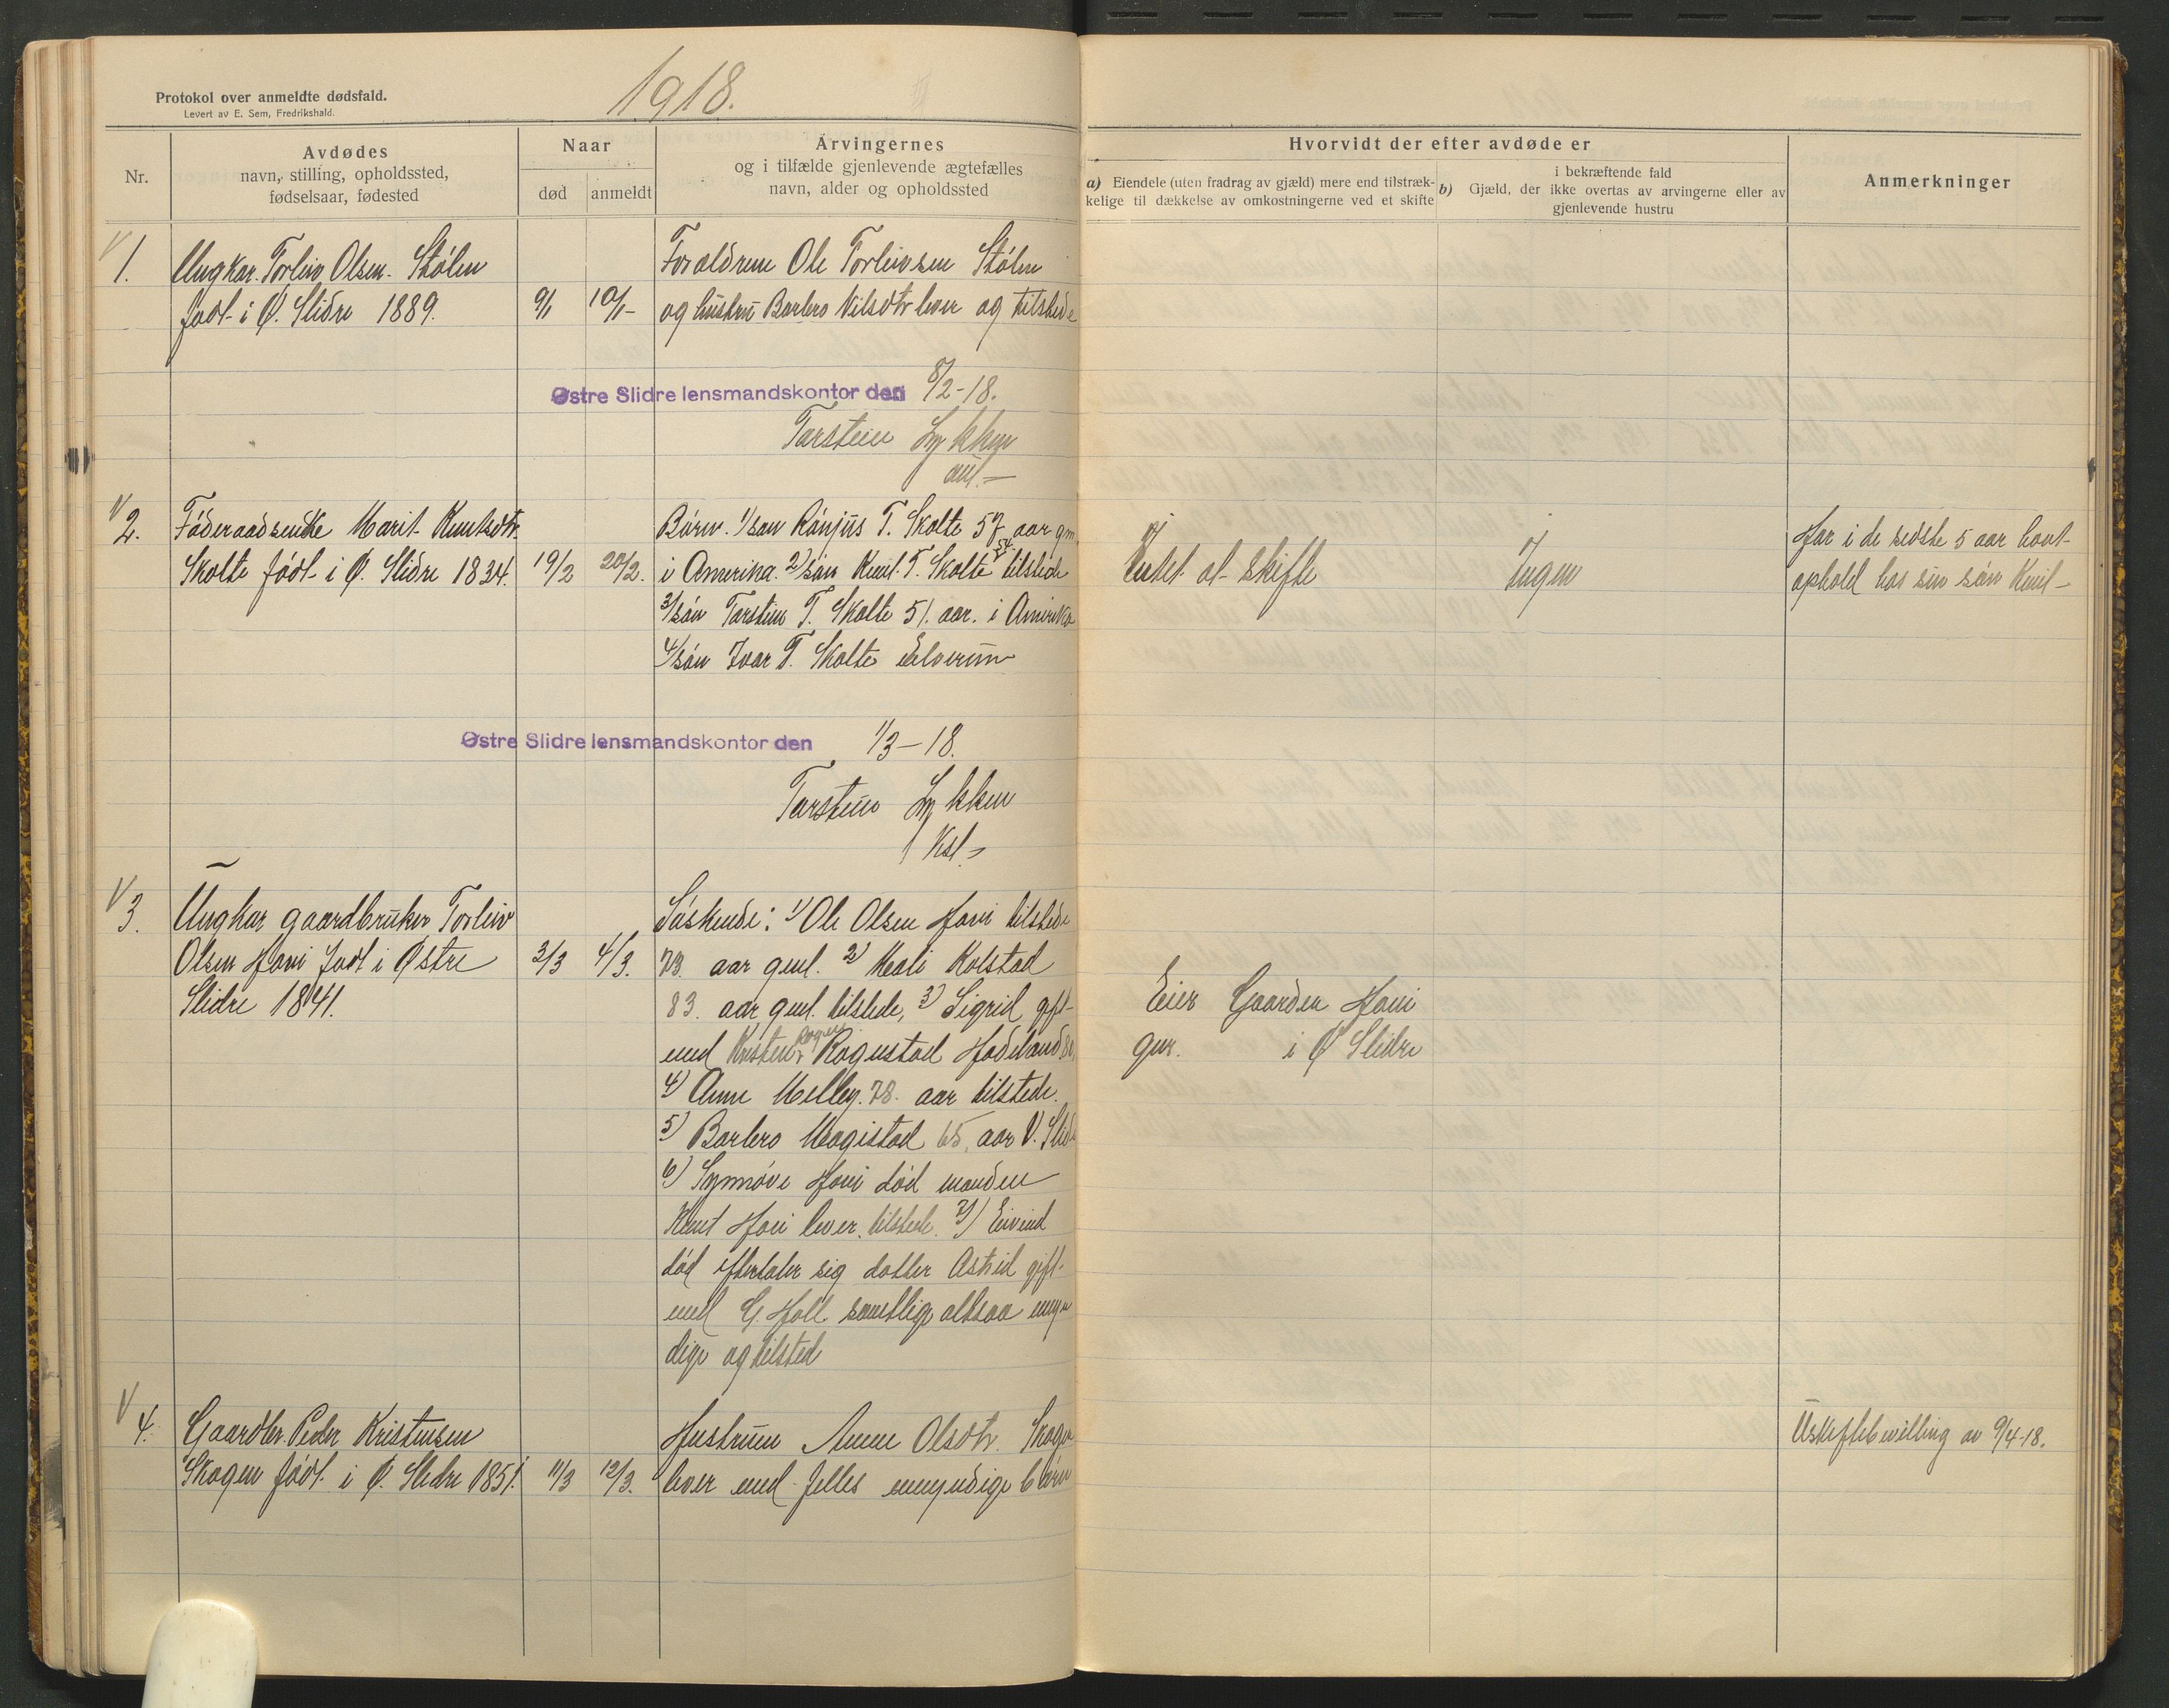 1918.
Protokol over anmeldte dødsfald.
Levert av E. Sem, Fredrikshald.
Nr.
Avdødes
navn, stilling, opholdssted,
fødselsaar, fødested
Naar
død
anmeldt
Arvingernes
og i tilfælde gjenlevende ægtefælles
navn, alder og opholdssted
Hvorvidt der efter avdøde er
a) Eiendele (uten fradrag av gjæld) mere end tilstræk-
kelige til dækkelse av omkostningerne ved et skifte
i bekræftende fald
b) Gjæld, der ikke overtas av arvingerne eller av
gjenlevende hustru
Anmerkninger
1. Ungkar Torleiv Olsen Stølen
født i Ø. Slidre 1889.
9/1
10/1
Forældrene Ole Torleivsen Stølen
og hustru Barbro Nilsdtr lever og tilstede
Østre Slidre lensmandskontor den 8/2-18.
Torstein Lykken
2. Føderaadsenke Marit Knutsdtr.
Skolte født i Ø. Slidre 1834.
19/2
20/2.
Børn. 1/ søn Rånjus T. Skolte 57 aar gm.
i Amerika. 2/ søn Knut T. Skolte 54 tilstede
3/ søn Torstein T. Skolte 51. aar. i Amerika
4/ søn Ivar T. Skolte Elverum
Intet at skifte
Ingen
Har i de sidste 5 aar havt
ophold hos sin søn Knut
Østre Slidre lensmandskontor den 1/3-18.
Torstein Lykken
Kst.
3. Ungkar gaardbruker Torleiv
Olsen Hovi født i Østre
Slidre 1841.
3/3
4/3.
Søskende: 1) Ole Olsen Hovi tilstede
73. aar gml. 2) Mali Kolstad
83. aar gml. tilstede, 3) Sigrid gift
med Kristen Rognstad Hadeland 80
4) Anne Melby. 78. aar tilstede.
5) Barbro Magistad 65. aar V. Slid
6) Synnøve Hovi død manden
Knut Hovi lever. tilstede. 7) Eivind
død efterlater sig datter Astrid gift
med G. Hall samtlige altsaa myn
dige og tilsted
Eier Gaarden Hovi
gnr. i Ø Slidre
4. Gaardbr. Peder Kristensen
Skogen født i Ø. Slidre 1851.
11/3
12/3.
Hustruen Anne Olsdtr. Skogen
lever med felles umyndige børn
Uskiftebevilling av 9/4-18.